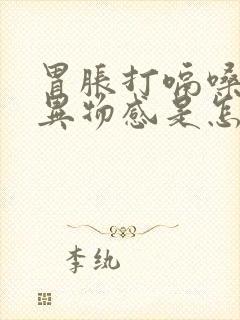 胃胀打嗝嗓
异物感是怎
李纨